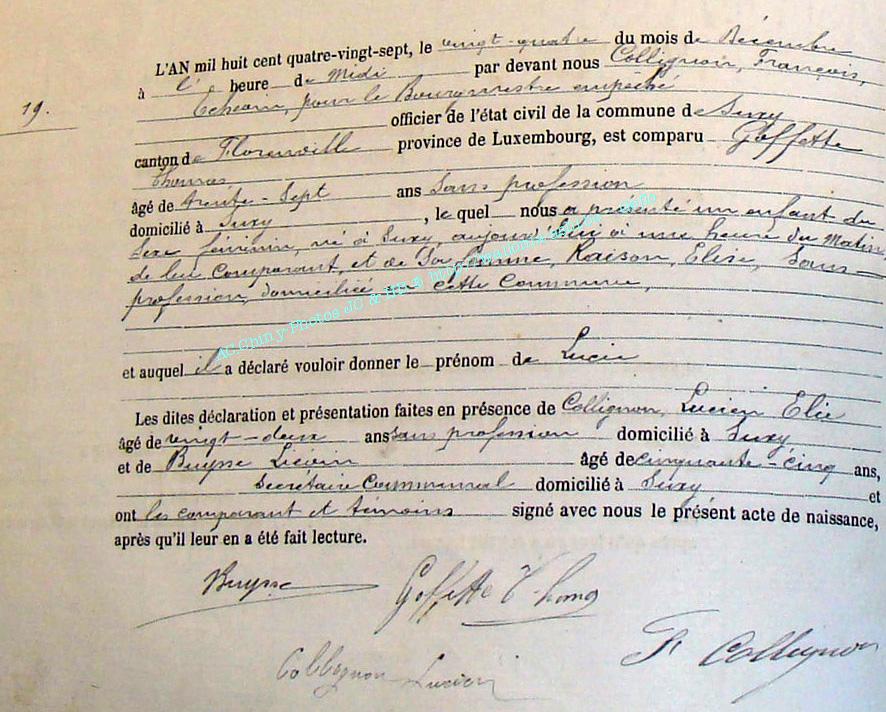 L'AN mil huit cent quatre-vingt-sept, le vingt-quatre du mois de Décembre
à l' heure de Midi par devant nous Collignon, François,
Echevin, pour le Bourgmestre empêché
19.
officier de l'état civil de la commune de Suxy
canton de Florenville province de Luxembourg, est comparu Goffette
Thomas
âgé de trente-Sept ans Sans profession
domicilié à Suxy, lequel nous a présenté un enfant du
Sexe féminin, né à Suxy, aujourd'hui à une heure du Matin,
de lui Comparant, et de Sa femme, Raison, Elise, Sans
profession, domiciliée en cette Commune,
AC Chiny Photos JC & 
et auquel il a déclaré vouloir donner le prénom de Lucie
Les dites déclaration et présentation faites en présence de Collignon, Lucien Elie
âgé de vingt-deux ans sans profession domicilié à Suxy
et de Buysse Liévin âgé de cinquante-cinq ans,
Secrétaire Communal domicilié à Suxy et
ont les comparant et témoins signé avec nous le présent acte de naissance,
après qu'il leur en a été fait lecture.
Buysse Goffette Thomas
F Collignon
Collignon Lucien